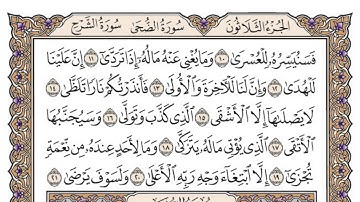 الجزء الثلاثون سورة الضحى سورة الشرح
فَسَنُيَسِّرُهُۥ لِلْعُسْرَىٰ ١٠ وَمَا يُغْنِى عَنْهُ مَالُهُۥٓ إِذَا تَرَدَّىٰٓ ١١ إِنَّ عَلَيْنَا
لَلْهُدَىٰ ١٢ وَإِنَّ لَنَا لَلْـَٔاخِرَةَ وَٱلْأُولَىٰ ١٣ فَأَنذَرْتُكُمْ نَارًا تَلَظَّىٰ ١٤
لَا يَصْلَىٰهَآ إِلَّا ٱلْأَشْقَى ١٥ ٱلَّذِى كَذَّبَ وَتَوَلَّىٰ ١٦ وَسَيُجَنَّبُهَا
ٱلْأَتْقَى ١٧ ٱلَّذِى يُؤْتِى مَالَهُۥ يَتَزَكَّىٰ ١٨ وَمَا لِأَحَدٍ عِندَهُۥ مِن نِّعْمَةٍ
تُجْزَىٰٓ ١٩ إِلَّا ٱبْتِغَآءَ وَجْهِ رَبِّهِ ٱلْأَعْلَىٰ ٢٠ وَلَسَوْفَ يَرْضَىٰ ٢١